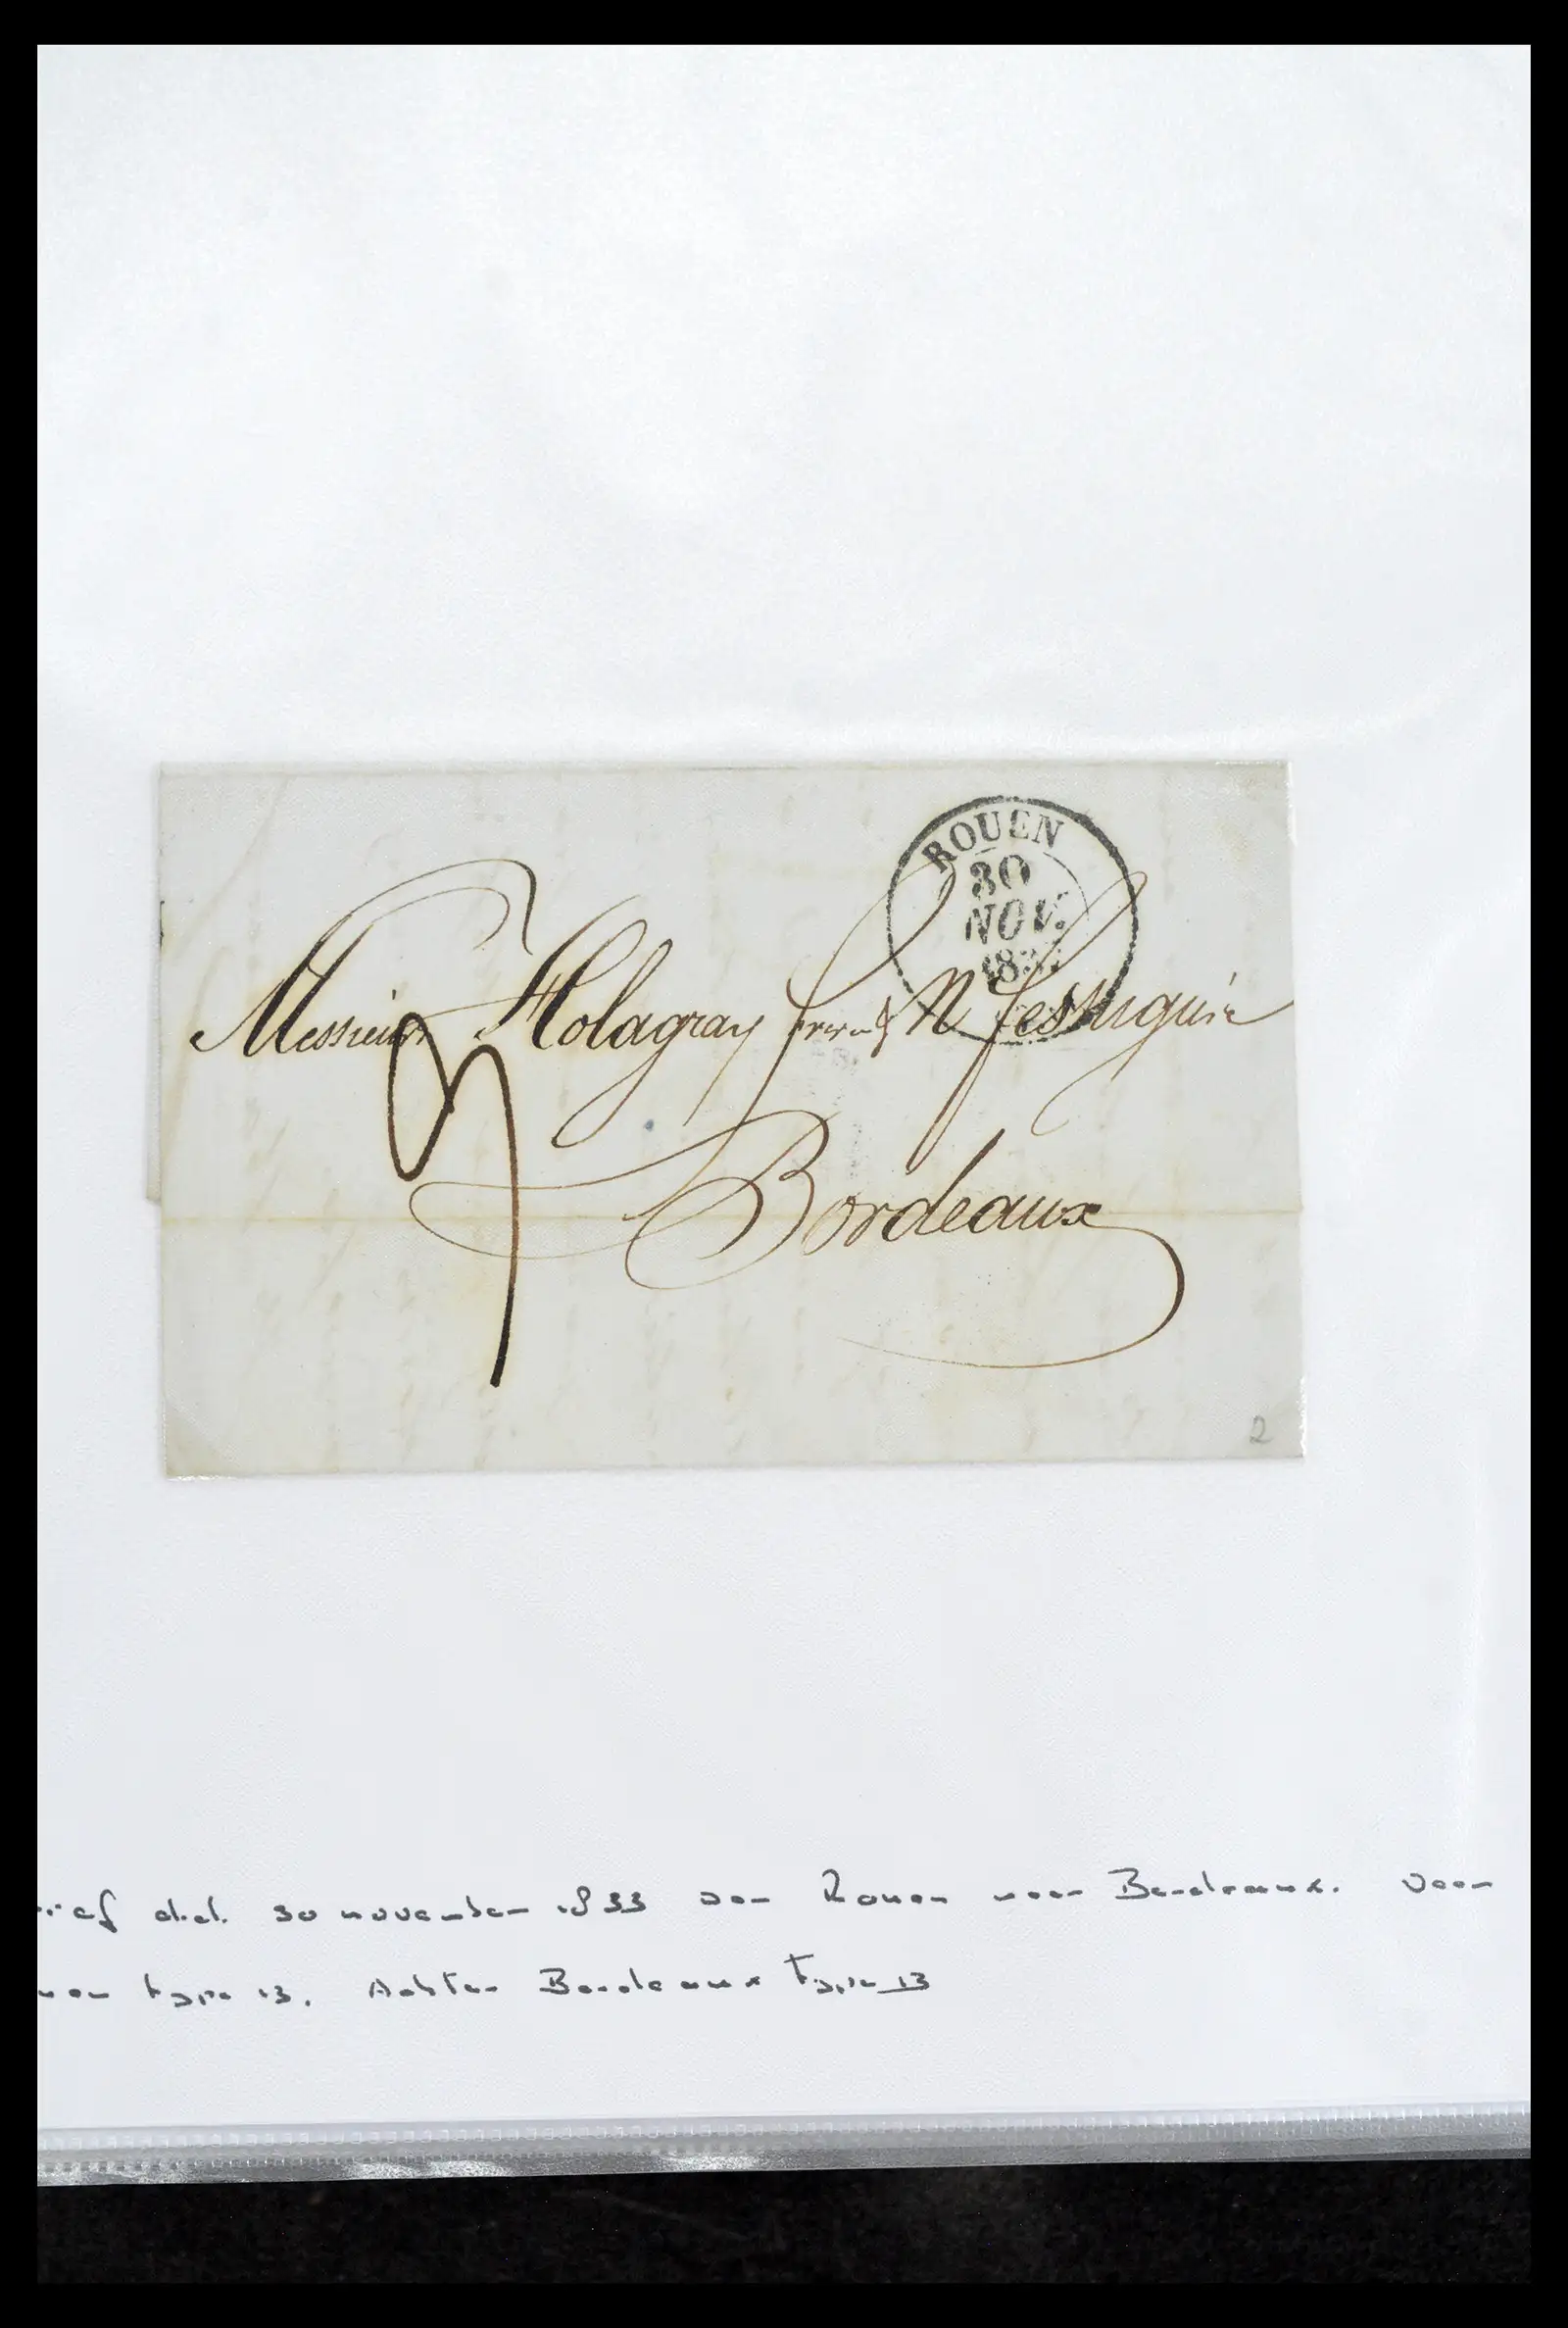 ROUEN
30
NOV.
Messieurs Holagray frere & N
Bordeaux
2
d.d. 30 november 1833 van Rouen naar Bordeaux. Voor
type 13. Achter Bordeaux type 13